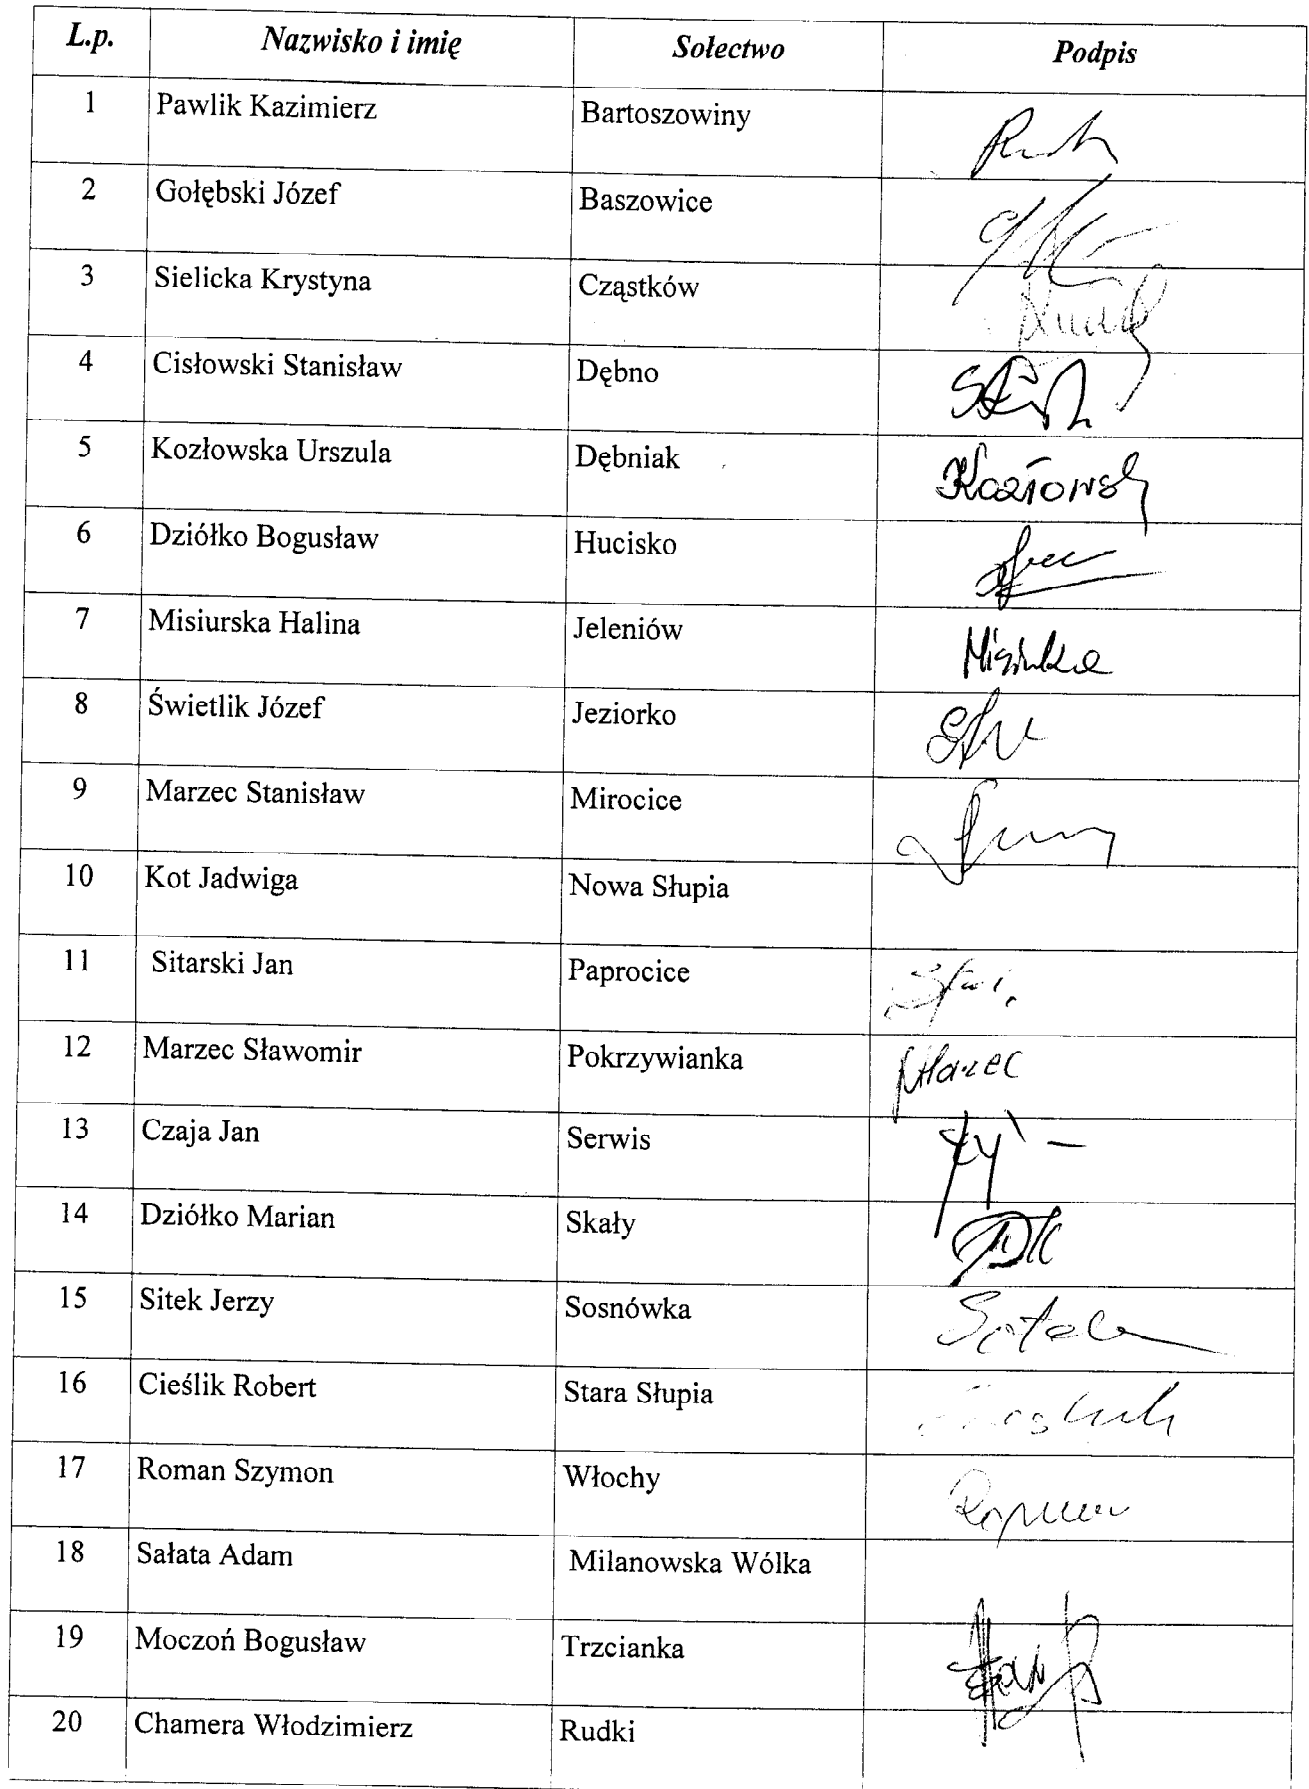 L.p. Nazwisko i imię Sołectwo Podpis
1 Pawlik Kazimierz Bartoszowiny
2 Gołębski Józef Baszowice
3 Sielicka Krystyna Cząstków
4 Cisłowski Stanisław Dębno
5 Kozłowska Urszula Dębniak
6 Dziółko Bogusław Hucisko
7 Misiurska Halina Jeleniów
8 Świetlik Józef Jeziorko
9 Marzec Stanisław Mirocice
10 Kot Jadwiga Nowa Słupia
11 Sitarski Jan Paprocice
12 Marzec Sławomir Pokrzywianka Marzec
13 Czaja Jan Serwis
14 Dziółko Marian Skały
15 Sitek Jerzy Sosnówka
16 Cieślik Robert Stara Słupia
17 Roman Szymon Włochy
18 Sałata Adam Milanowska Wólka
19 Moczoń Bogusław Trzcianka
20 Chamera Włodzimierz Rudki